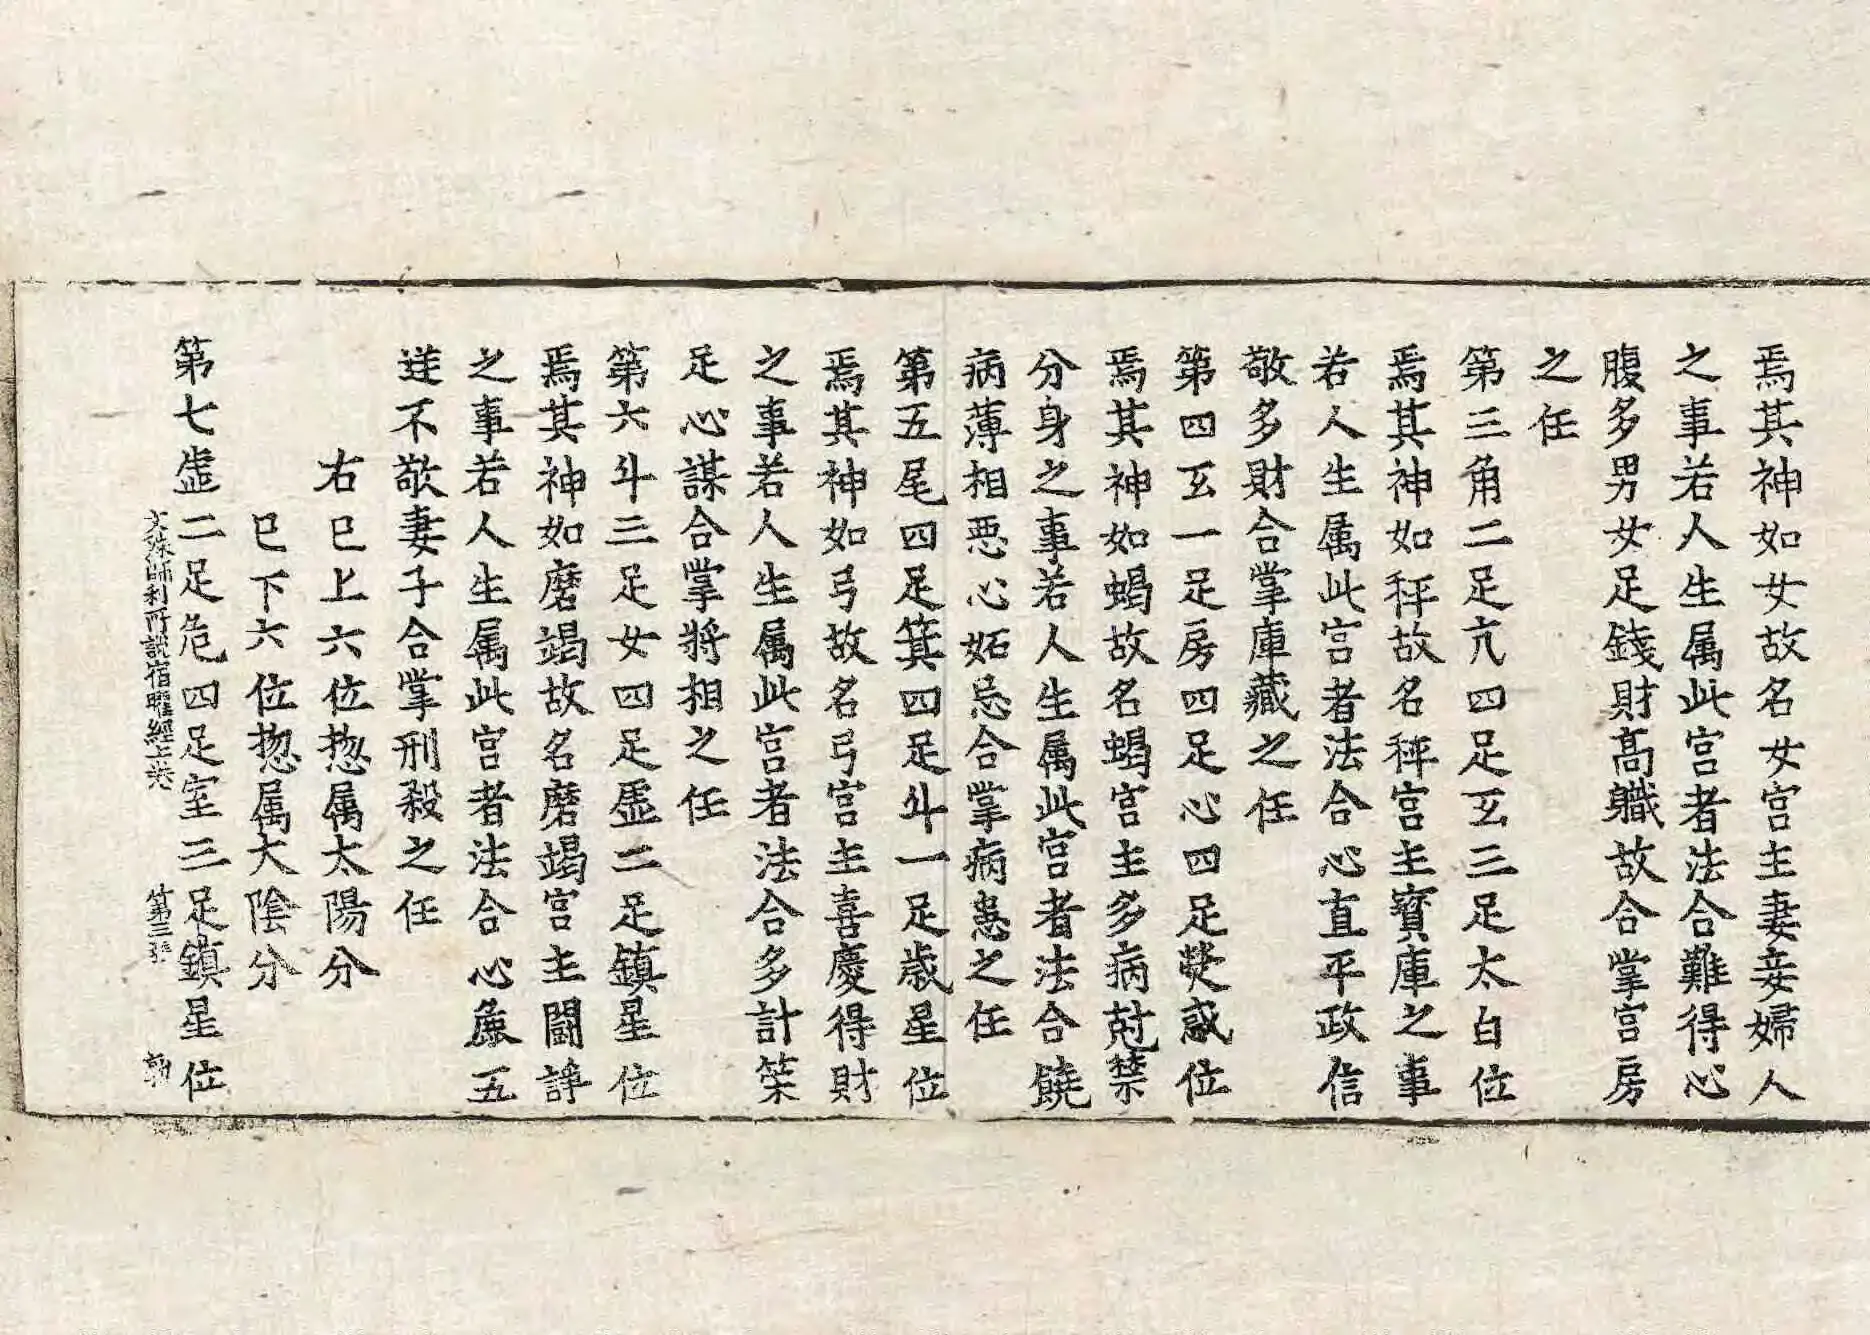 焉其神如女故名女宮主妻妾婦人
之事若人生属此宮者法合難得心
腹多男女足錢財高職故合掌宮房
之任
第三角二足亢四足互三足太白位
焉其神如秤故名秤宮主寳庫之事
若人生属此宮者法合心直平政信
敬多財合掌庫藏之任
第四互一足房四足心四足熒惑位
焉其神如蝎故名蝎宮主多病尅禁
分身之事若人生属此宮者法合饒
病薄相惡心妬忌合掌病患之任
第五尾四足箕四足斗一足歳星位
焉其神如弓故名弓宮主喜慶得財
之事若人生属此宮者法合多計筞
足心謀合掌將相之任
第六斗三足女四足虛二足鎮星位
焉其神如磨竭故名磨竭宮主鬪諍
之事若人生属此宮者法合心麁五
逆不敬妻子合掌刑殺之任
右已上六位揔属太陽分
已下六位揔属太陰分
第七虛二足危四足室三足鎮星位
文殊師利所說宿曜經上卷 第三張